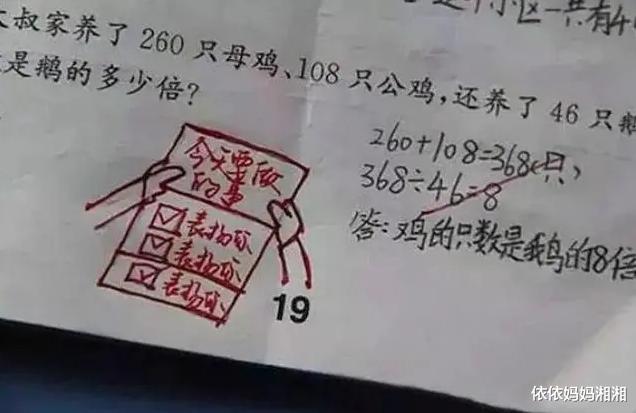 一共有4
叔家养了 260 只母鸡、108 只公鸡，还养了 46 只鹅
是鹅的多少倍？
260+108=368(只)
368÷46=8
答：鸡的只数是鹅的8倍
今天要做
的事
表扬你
表扬你
表扬你
19
依依妈妈湘湘